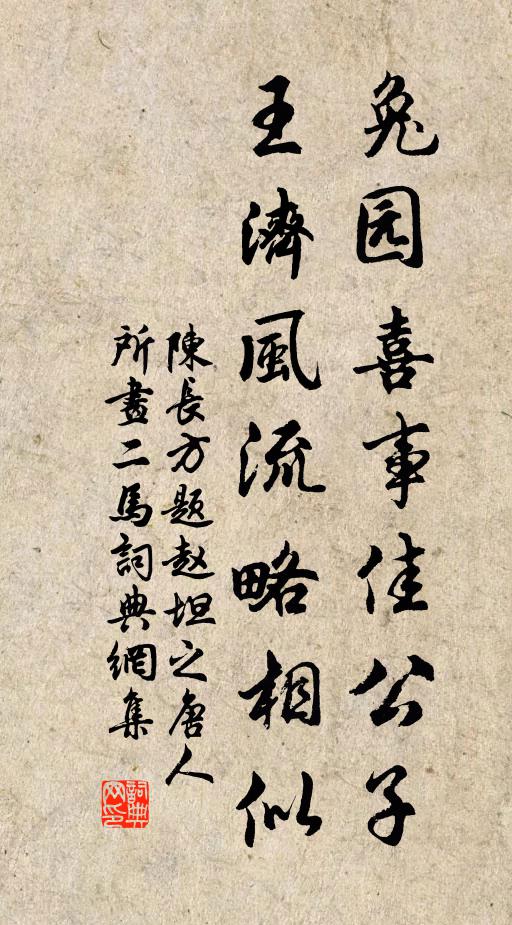 兔园喜事佳公子
王濟風流略相似
陳長方题赵坦之唐人
所畫二馬詞典網集
詞典网印